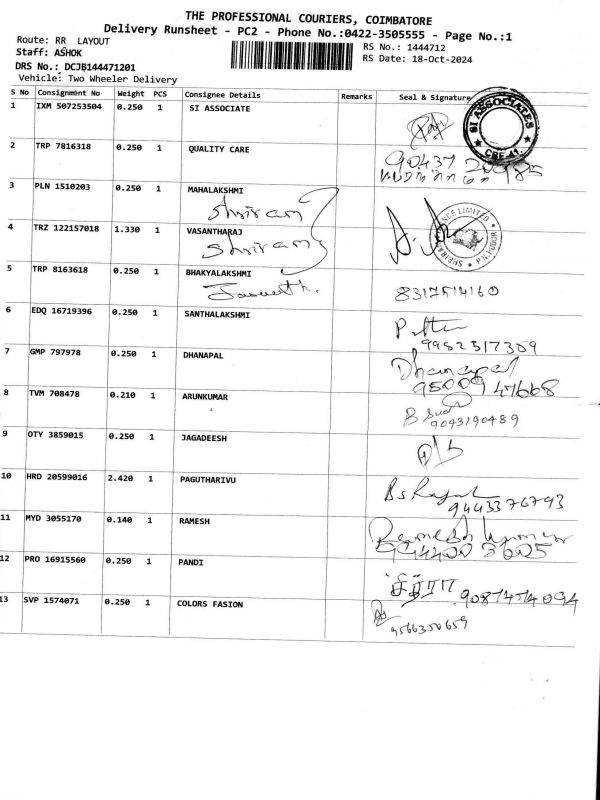 THE PROFESSIONAL COURIERS, COIMBATORE
Delivery Runsheet - PC2 - Phone No.:0422-3505555 - Page No.:1
Route: RR LAYOUT
RS No.: 1444712
Staff: ASHOK
RS Date: 18-Oct-2024
DRS No.: DCJB144471201
Vehicle: Two Wheeler Delivery
S No Consignment No Weight PCS Consignee Details Remarks Seal & Signature
1 IXM 507253504 0.250 1 SI ASSOCIATE
SI ASSOCIATES
2 TRP 7816318 0.250 1 QUALITY CARE
3 PLN 1510203 0.250 1 MAHALAKSHMI
Shriram
4 TRZ 122157018 1.330 1 VASANTHARAJ
Shriram
5 TRP 8163618 0.250 1 BHAKYALAKSHMI
8317514160
6 EDQ 16719396 0.250 1 SANTHALAKSHMI
9952517359
7 GMP 797978 0.250 1 DHANAPAL
Dhanapal
8 TVM 708478 0.210 1 ARUNKUMAR
9043190489
9 OTY 3859015 0.250 1 JAGADEESH
10 HRD 20599016 2.420 1 PAGUTHARIVU
9443376793
11 MYD 3055170 0.140 1 RAMESH
12 PRO 16915560 0.250 1 PANDI
சித்ரா 9087474094
13 SVP 1574071 0.250 1 COLORS FASION
9566350659